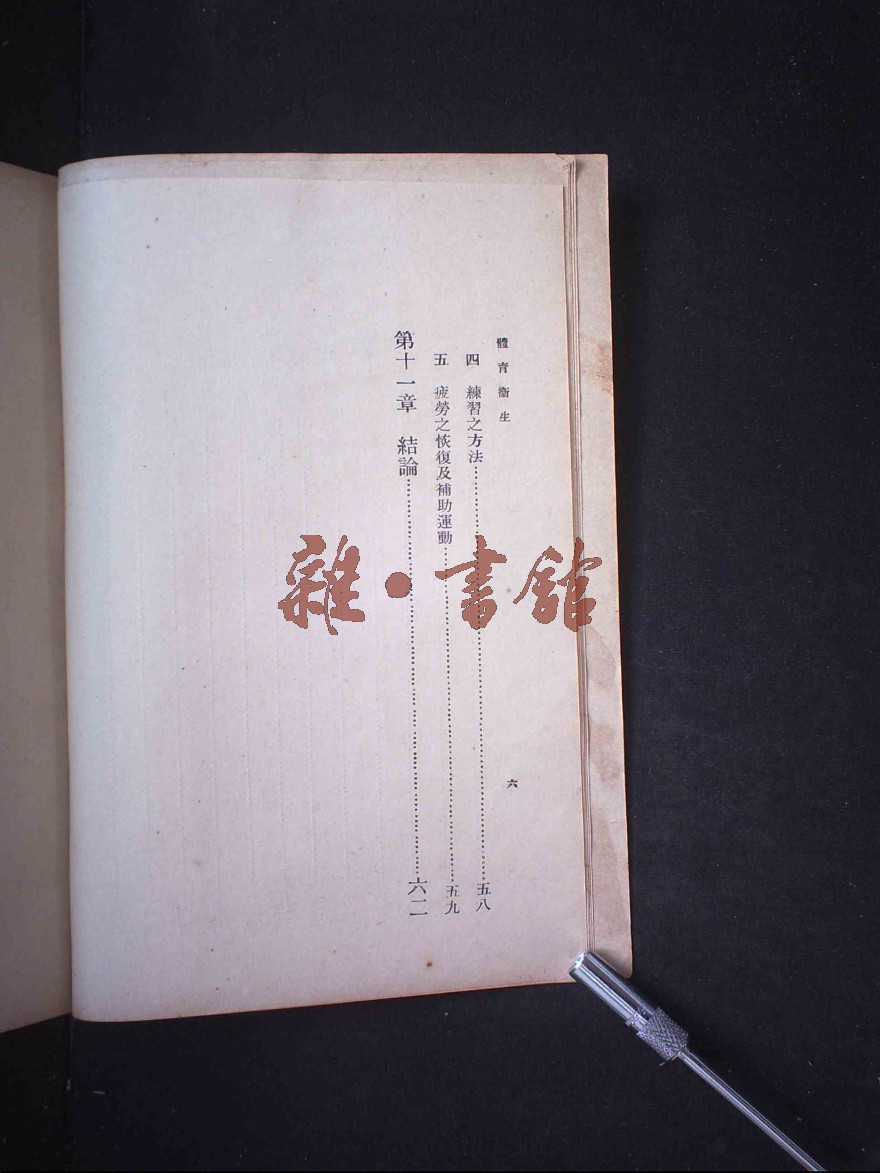 體育衞生
六
四 練習之方法……五八
五 疲勞之恢復及補助運動……五九
第十一章 結論……六二
雜·書館